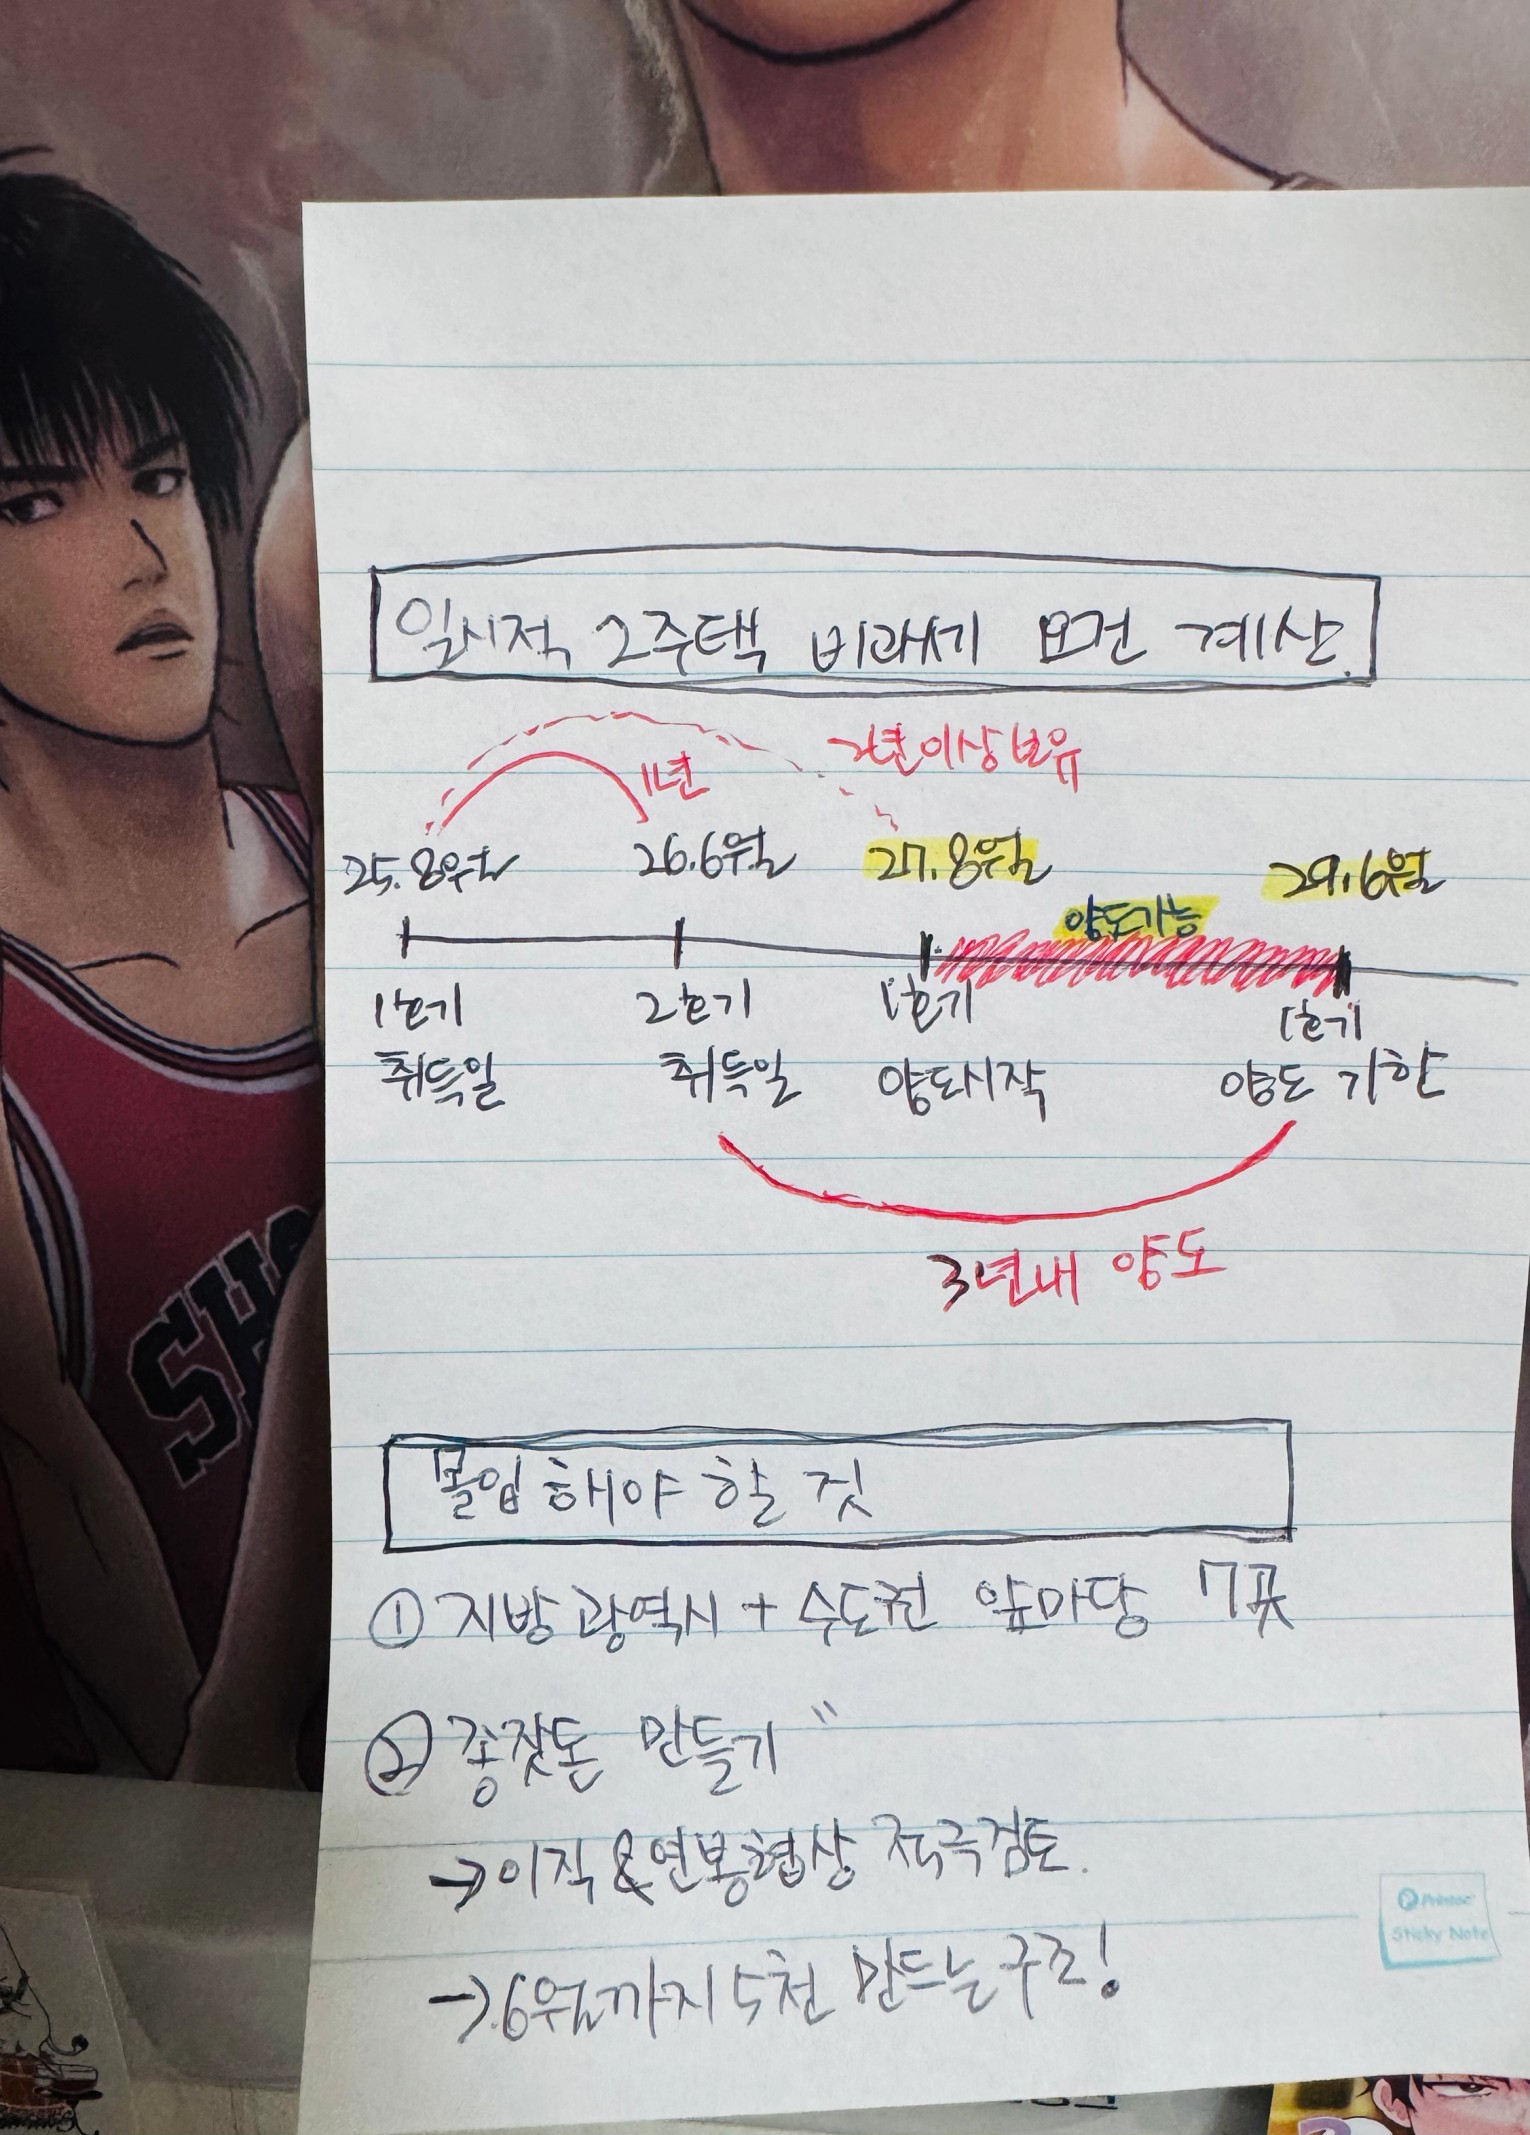 일시적 2주택 비과세 요건 계산.
1년
2년이상 보유
25.8월 26.6월 27.8월 29.6월
양도가능
1호기 2호기 1호기 1호기
취득일 취득일 양도시작 양도 기한
3년내 양도
몰입해야 할 것
① 지방광역시 + 수도권 앞마당 7곳
② 종잣돈 만들기"
→이직&연봉협상 적극검토.
→6월까지 5천 만드는 구조!
Sticky Note
SHO